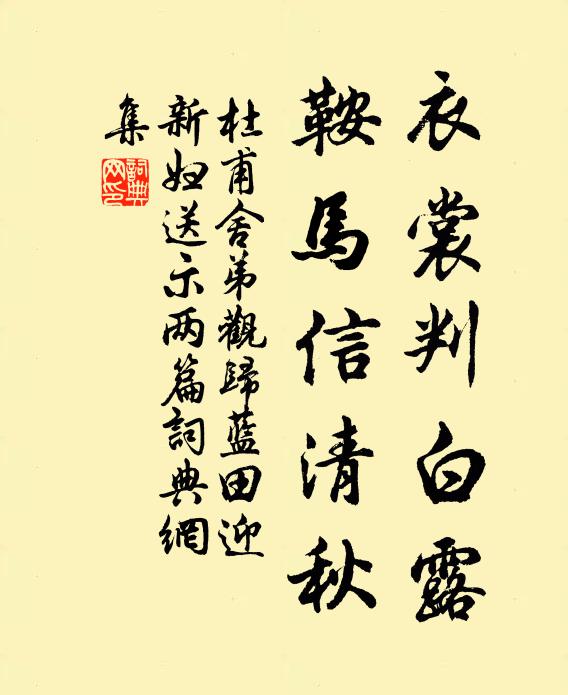 衣裳判白露
鞍馬信清秋
杜甫舍弟觀歸藍田迎
新妇送示两篇詞典網
集
詞典
网印